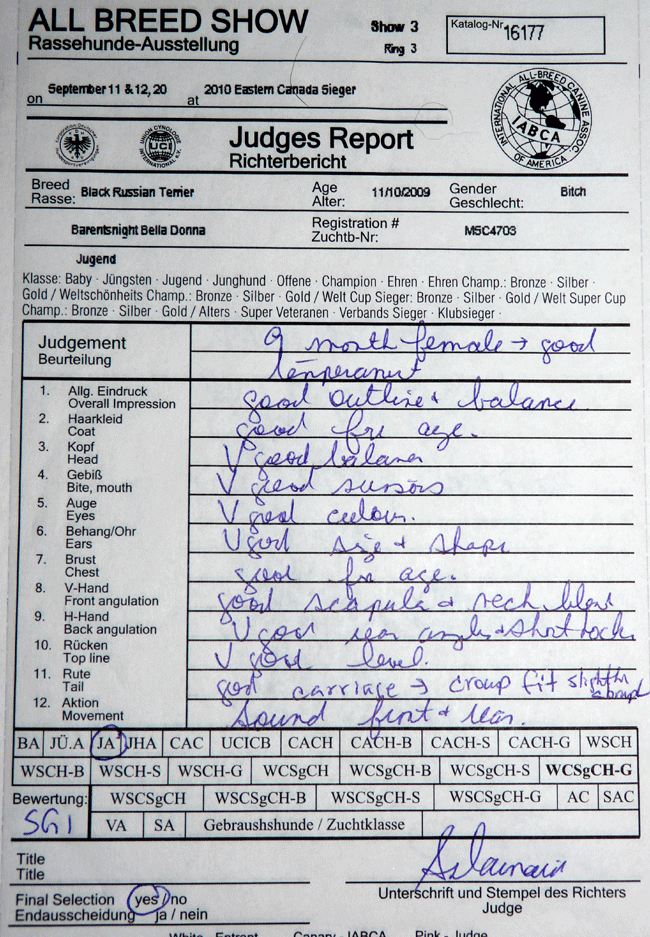 ALL BREED SHOW
Rassehunde-Ausstellung
Show 3
Ring 3
Katalog-Nr. 16177
on September 11 & 12, 20 at 2010 Eastern Canada Sieger
UNION CYNOLOGIE INTERNATIONAL e.V.
UCI
Judges Report
Richterbericht
INTERNATIONAL ALL-BREED CANINE ASSOC. OF AMERICA
IABCA
Breed Rasse: Black Russian Terrier
Age Alter: 11/10/2009
Gender Geschlecht: Bitch
Barentsnight Bella Donna
Registration # Zuchtb-Nr: M5C4703
Jugend
Klasse: Baby · Jüngsten · Jugend · Junghund · Offene · Champion · Ehren · Ehren Champ.: Bronze · Silber ·
Gold / Weltschönheits Champ.: Bronze · Silber · Gold / Welt Cup Sieger: Bronze · Silber · Gold / Welt Super Cup
Champ.: Bronze · Silber · Gold / Alters · Super Veteranen · Verbands Sieger · Klubsieger ·
Judgement Beurteilung
9 month female → good
temperament
1. Allg. Eindruck Overall Impression good outline & balance
2. Haarkleid Coat good for age.
3. Kopf Head V good balance
4. Gebiß Bite, mouth V good
5. Auge Eyes V good colour.
6. Behang/Ohr Ears V good size & shape
7. Brust Chest good for age.
8. V-Hand Front angulation good scapula & neck
9. H-Hand Back angulation V good rear angles & short hocks
10. Rücken Top line V good level.
11. Rute Tail good carriage → croup slightly abrupt
12. Aktion Movement Sound front & rear.
BA JÜ.A JA JHA CAC UCICB CACH CACH-B CACH-S CACH-G WSCH
WSCH-B WSCH-S WSCH-G WCSgCH WCSgCH-B WCSgCH-S WCSgCH-G
Bewertung: WSCSgCH WSCSgCH-B WSCSgCH-S WSCSgCH-G AC SAC
SG1 VA SA Gebraushshunde / Zuchtklasse
Title
Title
Final Selection yes / no
Endausscheidung ja / nein
Unterschrift und Stempel des Richters
Judge
White - Entrant Canary - IABCA Pink - Judge